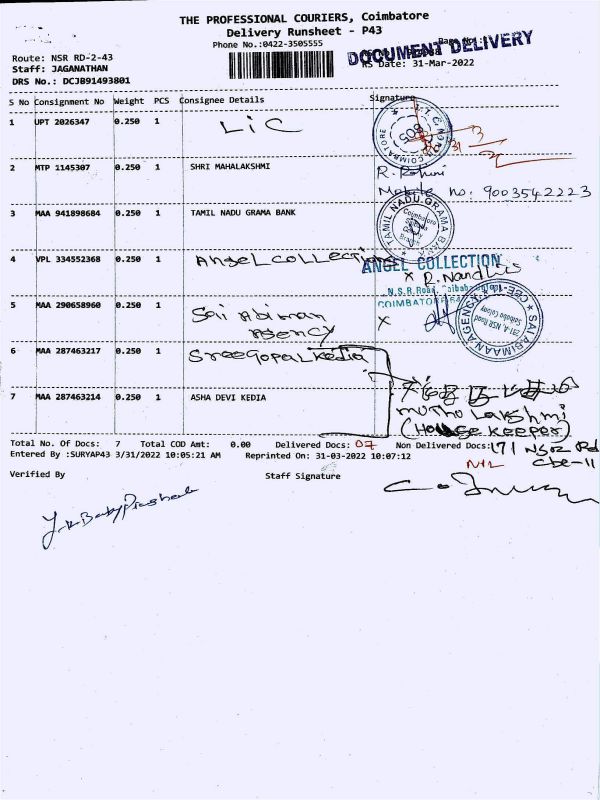 THE PROFESSIONAL COURIERS, Coimbatore
Delivery Runsheet - P43
Phone No.:0422-3505555
DOCUMENT DELIVERY
Route: NSR RD-2-43
Staff: JAGANATHAN
RS Date: 31-Mar-2022
DRS No.: DCJB91493801
S No Consignment No Weight PCS Consignee Details Signature
1 UPT 2026347 0.250 1 LIC
COIMBATORE
2 MTP 1145307 0.250 1 SHRI MAHALAKSHMI
R. Rohini
Mobile no. 9003542223
3 MAA 941898684 0.250 1 TAMIL NADU GRAMA BANK
TAMIL NADU GRAMA BANK
4 VPL 334552368 0.250 1 ANGEL COLLECTION
ANGEL COLLECTION
x R. Nandhis
N.S.R. Road,
COIMBATORE
5 MAA 290658960 0.250 1 Sai Abiman Agency
x
SAI ABIMAAN AGENCY
231-A, NSR Road
Saibaba Colony
6 MAA 287463217 0.250 1 Sreegopal Kedia
7 MAA 287463214 0.250 1 ASHA DEVI KEDIA
Muthu Lakshmi
(House Keeper)
Total No. Of Docs: 7 Total COD Amt: 0.00 Delivered Docs: 07 Non Delivered Docs: NIL
171 NSR Rd
Cbe-11
Entered By :SURYAP43 3/31/2022 10:05:21 AM Reprinted On: 31-03-2022 10:07:12
Verified By Staff Signature